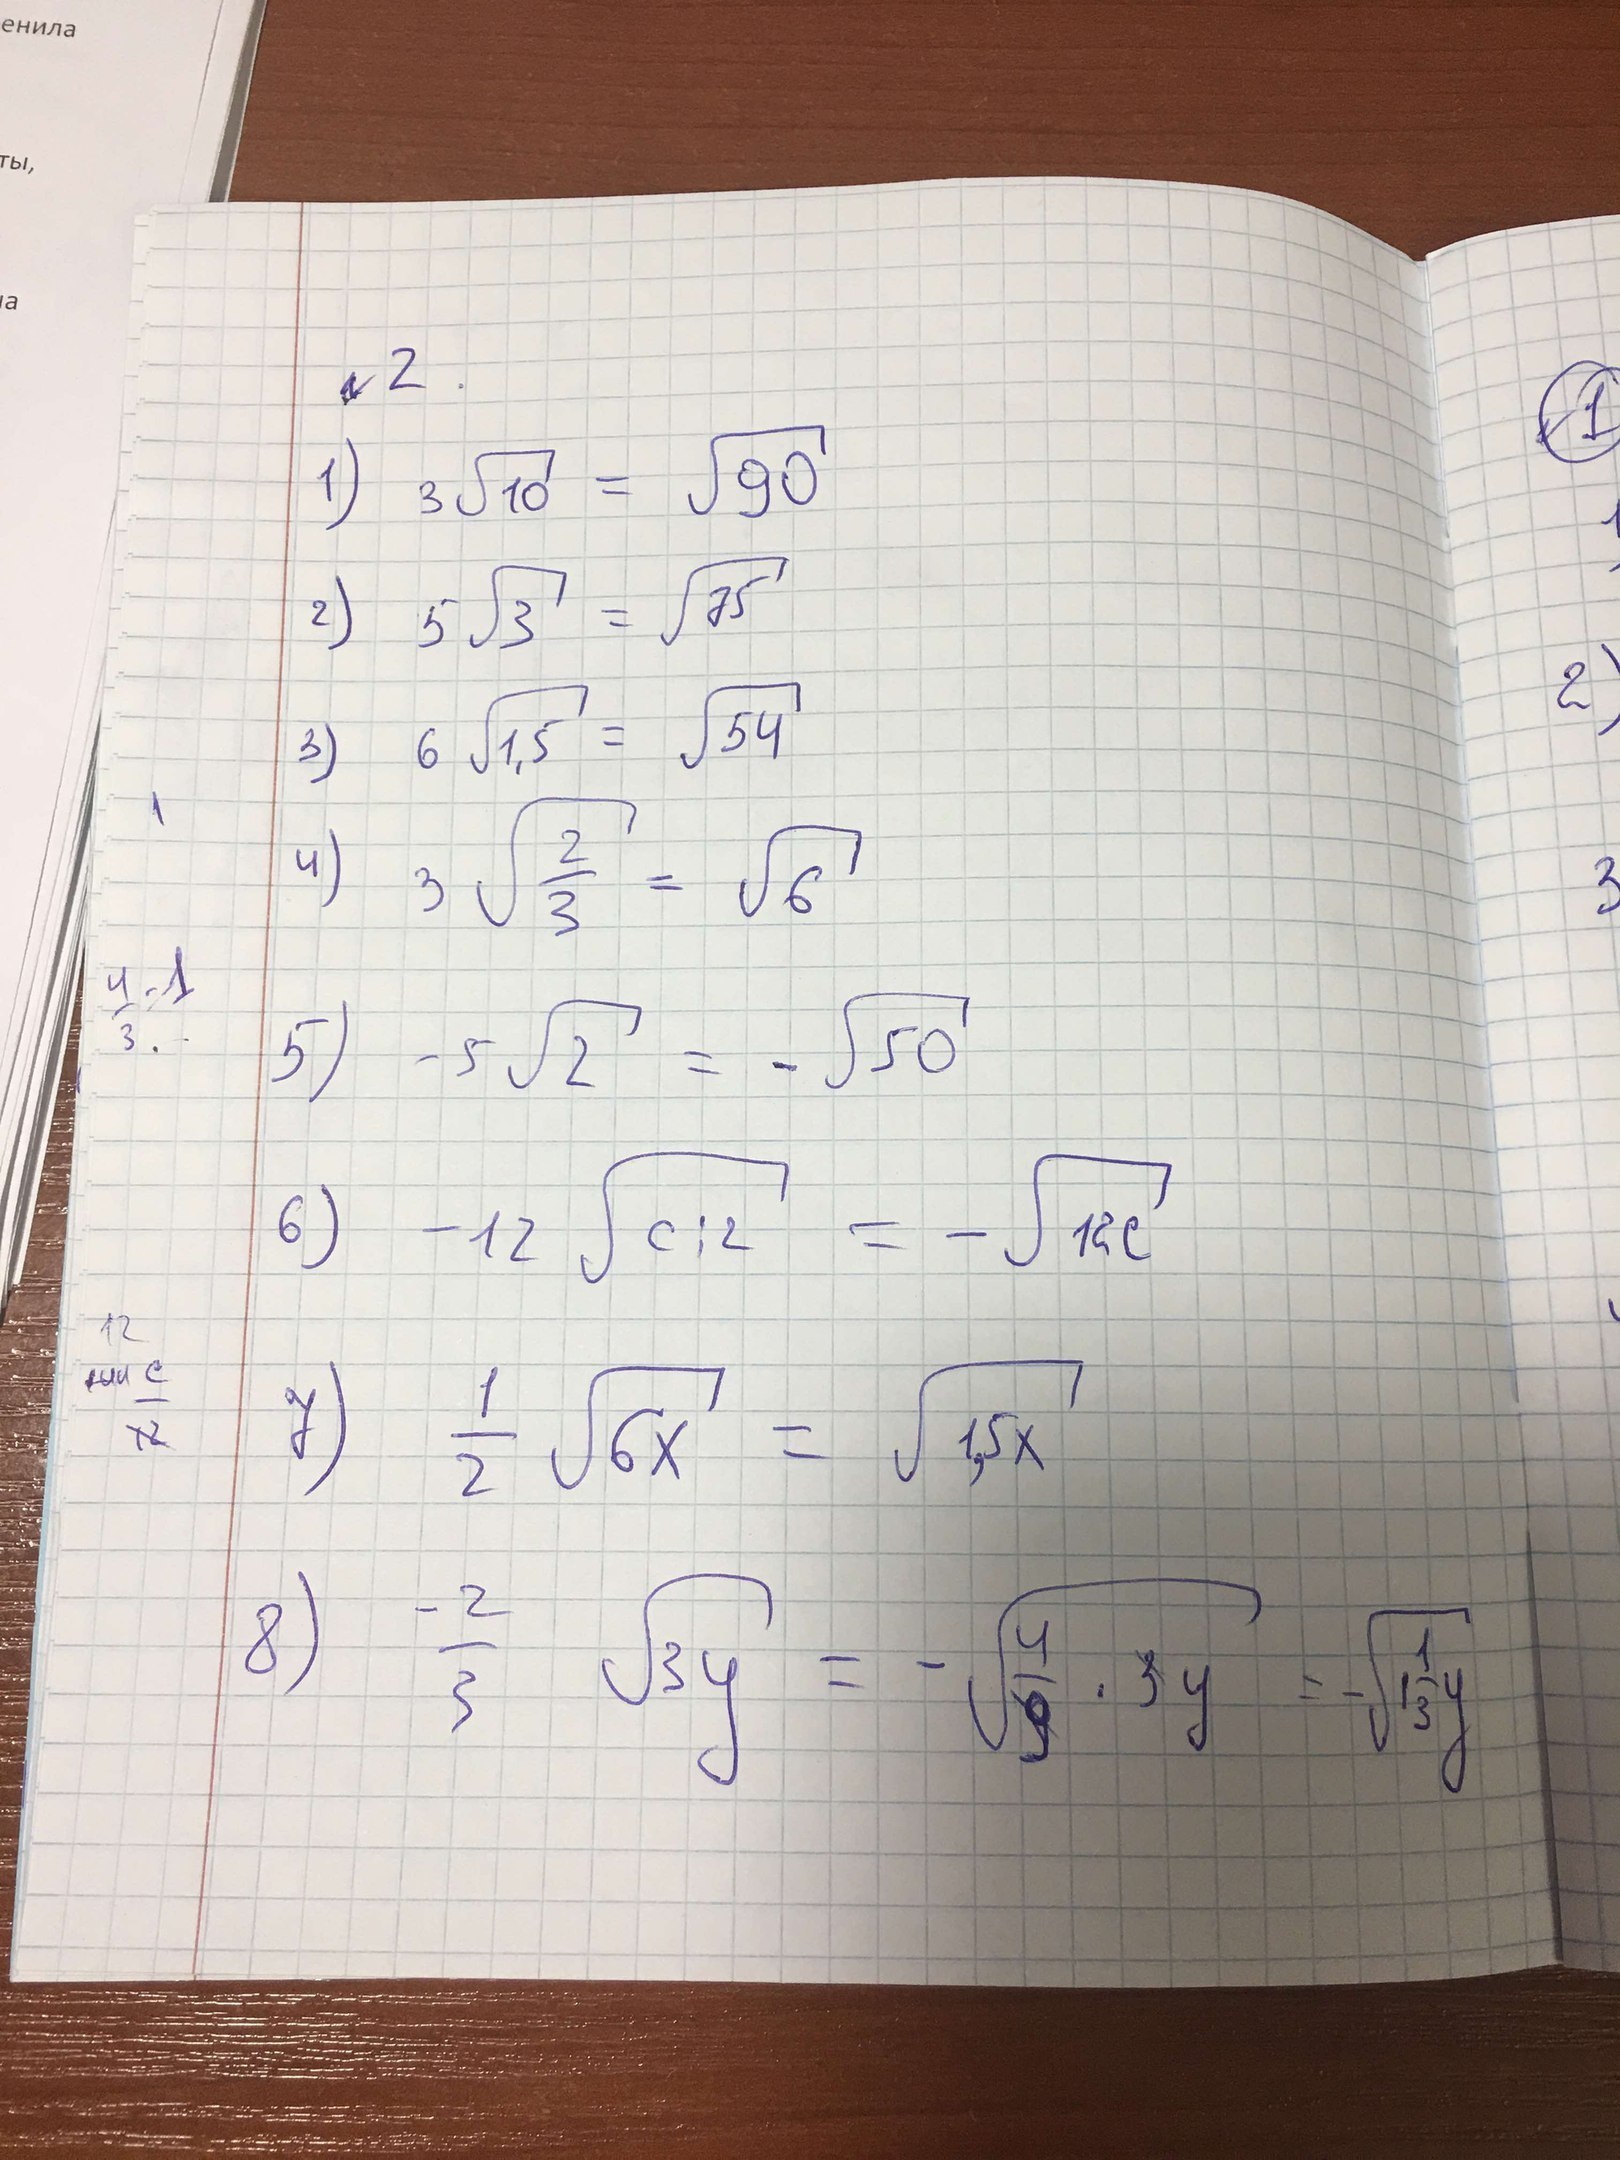 енила
ты,
на
№2.
1) 3√10 = √90
2) 5√3 = √75
3) 6√1,5 = √54
1
4) 3√(2/3) = √6
4/3 · 1
5) -5√2 = -√50
6) -12√(c:12) = -√(12c)
12
c
12
7) 1/2 √(6x) = √(1,5x)
8) -2/3 √(3y) = -√(4/9 · 3y) = -√(1 1/3 y)
1
2)
3